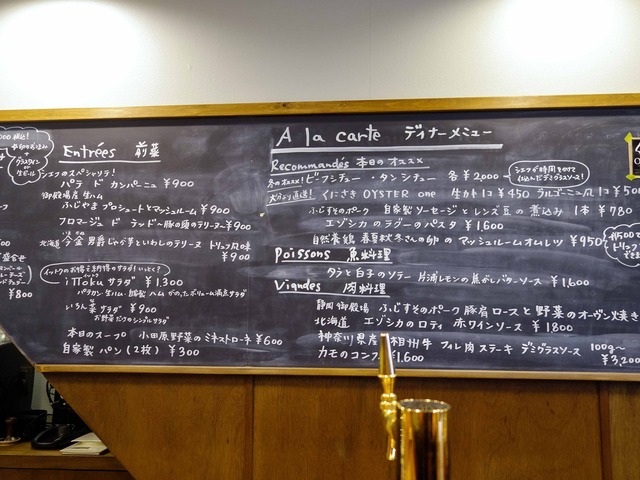 Entrées 前菜
シェフのスペシャリテ!
パテ ド カンパーニュ ¥900
御殿場産 生ハム
ふじやまプロシュートとマッシュルーム ¥900
フロマージュ ド テッド〜豚の頭のテリーヌ〜 ¥900
北海道 今金 男爵じゃが芋といわしのテリーヌ トリュフ風味
¥900
イットクのお得で納得のサラダ!いっとく?
iTToku サラダ ¥1,300
いろん菜 サラダ ¥900
お野菜だけのシンプルサラダ
本日のスープ 小田原野菜のミネストローネ ¥600
自家製 パン(2枚) ¥300
¥800
A la carte ディナーメニュー
Recommandés 本日のオススメ
冬のオススメ! ビーフシチュー・タンシチュー 各¥2,000
シェフが時間を付けて
仕込んだデミグラスソース!
大分より直送! くにさき OYSTER one 生カキ 1コ ¥450 ラルゴーニュ風 1コ ¥50
ふじすそのポーク 自家製 ソーセージとレンズ豆の煮込み 1本 ¥780
エゾシカのラグーのパスタ ¥1,600
自然養鶏 春夏秋冬さんの卵の マッシュルームオムレツ ¥950
Poissons 魚料理
タラと白子のソテー 片浦レモンの焦がしバターソース ¥1,600
Viandes 肉料理
静岡 御殿場 ふじすそのポーク 豚肩ロースと野菜のオーヴン焼き
北海道 エゾシカのロティ 赤ワインソース ¥1800
神奈川県産 相州牛 フィレ肉ステーキ デミグラスソース 100g〜
¥3,200
カモのコンフィ ¥1,600